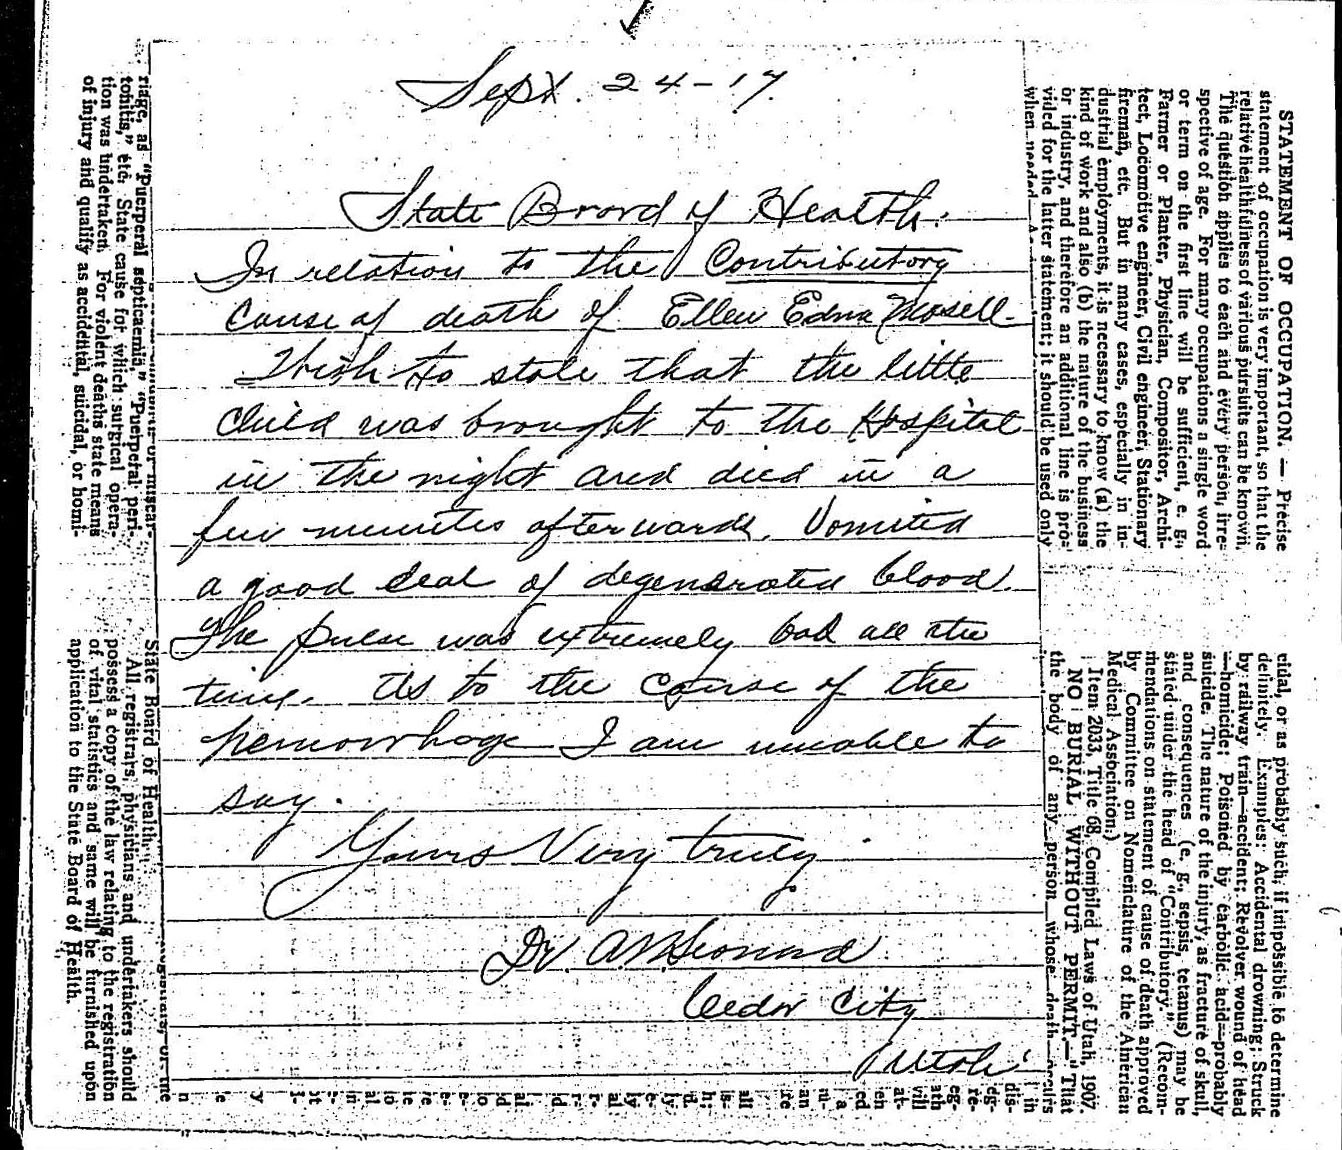 Sept. 24-17.
State Board of Health.
In relation to the Contributory
cause of death of Ellen Edna Mosell
I wish to state that the little
child was brought to the Hospital
in the night and died in a
few minutes afterwards. Vomited
a good deal of degenerated blood.
The pulse was extremely bad all the
time. As to the cause of the
hemorrhage I am unable to
say.
Yours Very truly
Dr. Leonard
Cedar City
Utah
STATEMENT OF OCCUPATION. — Precise
statement of occupation is very important, so that the
relative healthfulness of various pursuits can be known.
The question applies to each and every person, irre-
spective of age. For many occupations a single word
or term on the first line will be sufficient, e. g.,
Farmer or Planter, Physician, Compositor, Archi-
tect, Locomotive engineer, Civil engineer, Stationary
fireman, etc. But in many cases, especially in in-
dustrial employments, it is necessary to know (a) the
kind of work and also (b) the nature of the business
or industry, and therefore an additional line is pro-
vided for the later statement; it should be used only
when needed.
cidal, or as probably such, if impossible to determine
definitely. Examples: Accidental drowning; Struck
by railway train—accident; Revolver wound of head
—homicide; Poisoned by carbolic acid—probably
suicide. The nature of the injury, as fracture of skull,
and consequences (e. g., sepsis, tetanus) may be
stated under the head of "Contributory." (Recom-
mendations on statement of cause of death approved
by Committee on Nomenclature of the American
Medical Association.)
Item 2033, Title 68, Compiled Laws of Utah, 1907.
NO BURIAL WITHOUT PERMIT.—That
the body of any person whose death occurs
or miscar-
riage, as "Puerperal septicaemia," "Puerperal peri-
tonitis," etc. State cause for which surgical opera-
tion was undertaken. For violent deaths state means
of injury and qualify as accidental, suicidal, or homi-
State Board of Health.
All registrars, physicians and undertakers should
possess a copy of the law relating to the registration
of vital statistics and same will be furnished upon
application to the State Board of Health.